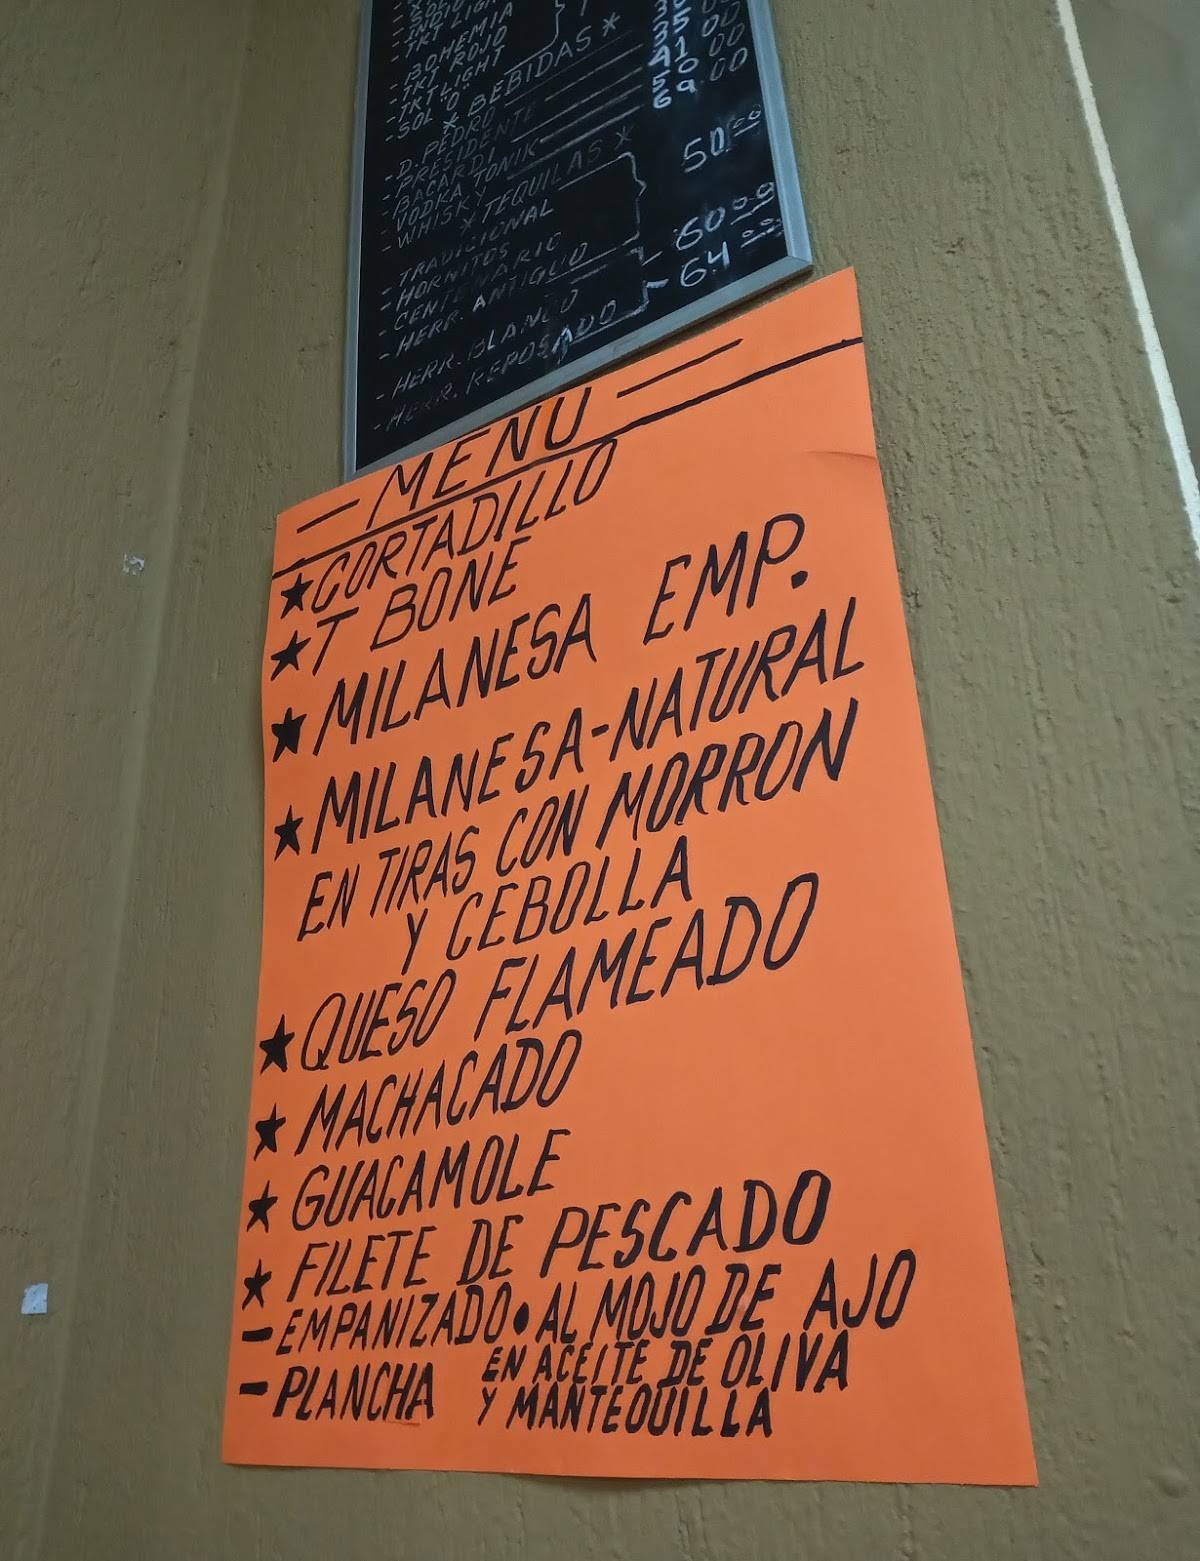 - BOHEMIA
- TKT ROJO
- TKT LIGHT
- SOL "0"
* BEBIDAS *
- D. PEDRO
- PRESIDENTE
- BACARDI
- VODKA TONIK
- WHISKY
* TEQUILAS *
- TRADICIONAL
- HORNITOS
- CENTENARIO
- HERR. ANTIGUO
- HERR. BLANCO
- HERR. REPOSADO
50.00
60.00
64.00
- MENU -
★ CORTADILLO
★ T BONE
★ MILANESA EMP.
★ MILANESA-NATURAL
EN TIRAS CON MORRON
Y CEBOLLA
★ QUESO FLAMEADO
★ MACHACADO
★ GUACAMOLE
★ FILETE DE PESCADO
- EMPANIZADO • AL MOJO DE AJO
EN ACEITE DE OLIVA
- PLANCHA Y MANTEQUILLA